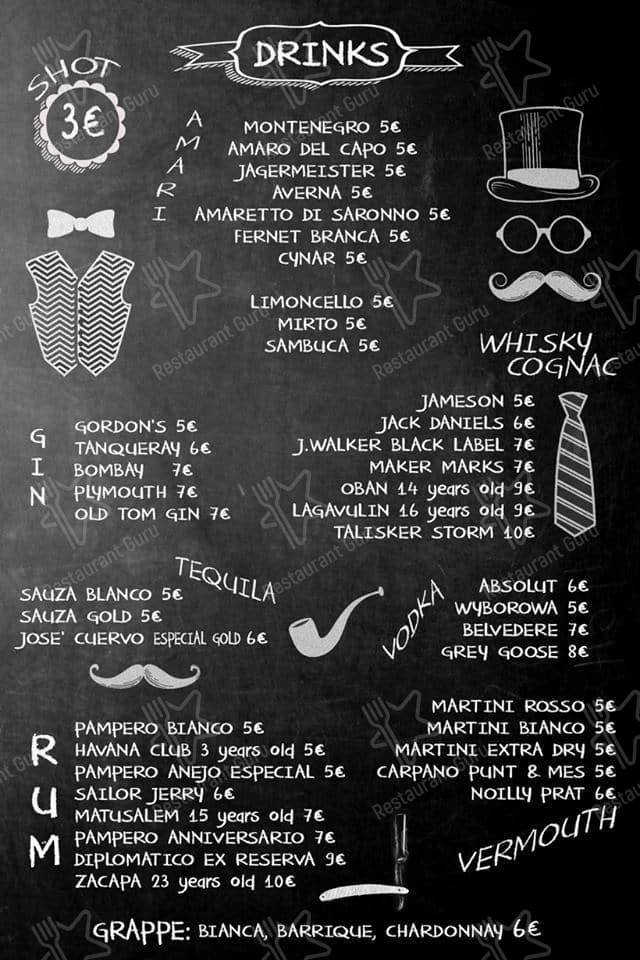 DRINKS
SHOT
3€
AMARI
MONTENEGRO 5€
AMARO DEL CAPO 5€
JAGERMEISTER 5€
AVERNA 5€
AMARETTO DI SARONNO 5€
FERNET BRANCA 5€
CYNAR 5€
LIMONCELLO 5€
MIRTO 5€
SAMBUCA 5€
WHISKY
COGNAC
JAMESON 5€
JACK DANIELS 6€
J.WALKER BLACK LABEL 7€
MAKER MARKS 7€
OBAN 14 years old 9€
LAGAVULIN 16 years old 9€
TALISKER STORM 10€
GIN
GORDON'S 5€
TANQUERAY 6€
BOMBAY 7€
PLYMOUTH 7€
OLD TOM GIN 7€
TEQUILA
SAUZA BLANCO 5€
SAUZA GOLD 5€
JOSE' CUERVO ESPECIAL GOLD 6€
VODKA
ABSOLUT 6€
WYBOROWA 5€
BELVEDERE 7€
GREY GOOSE 8€
RUM
PAMPERO BIANCO 5€
HAVANA CLUB 3 years old 5€
PAMPERO ANEJO ESPECIAL 5€
SAILOR JERRY 6€
MATUSALEM 15 years old 7€
PAMPERO ANNIVERSARIO 7€
DIPLOMATICO EX RESERVA 9€
ZACAPA 23 years old 10€
MARTINI ROSSO 5€
MARTINI BIANCO 5€
MARTINI EXTRA DRY 5€
CARPANO PUNT & MES 5€
NOILLY PRAT 6€
VERMOUTH
GRAPPE: BIANCA, BARRIQUE, CHARDONNAY 6€
Restaurant Guru